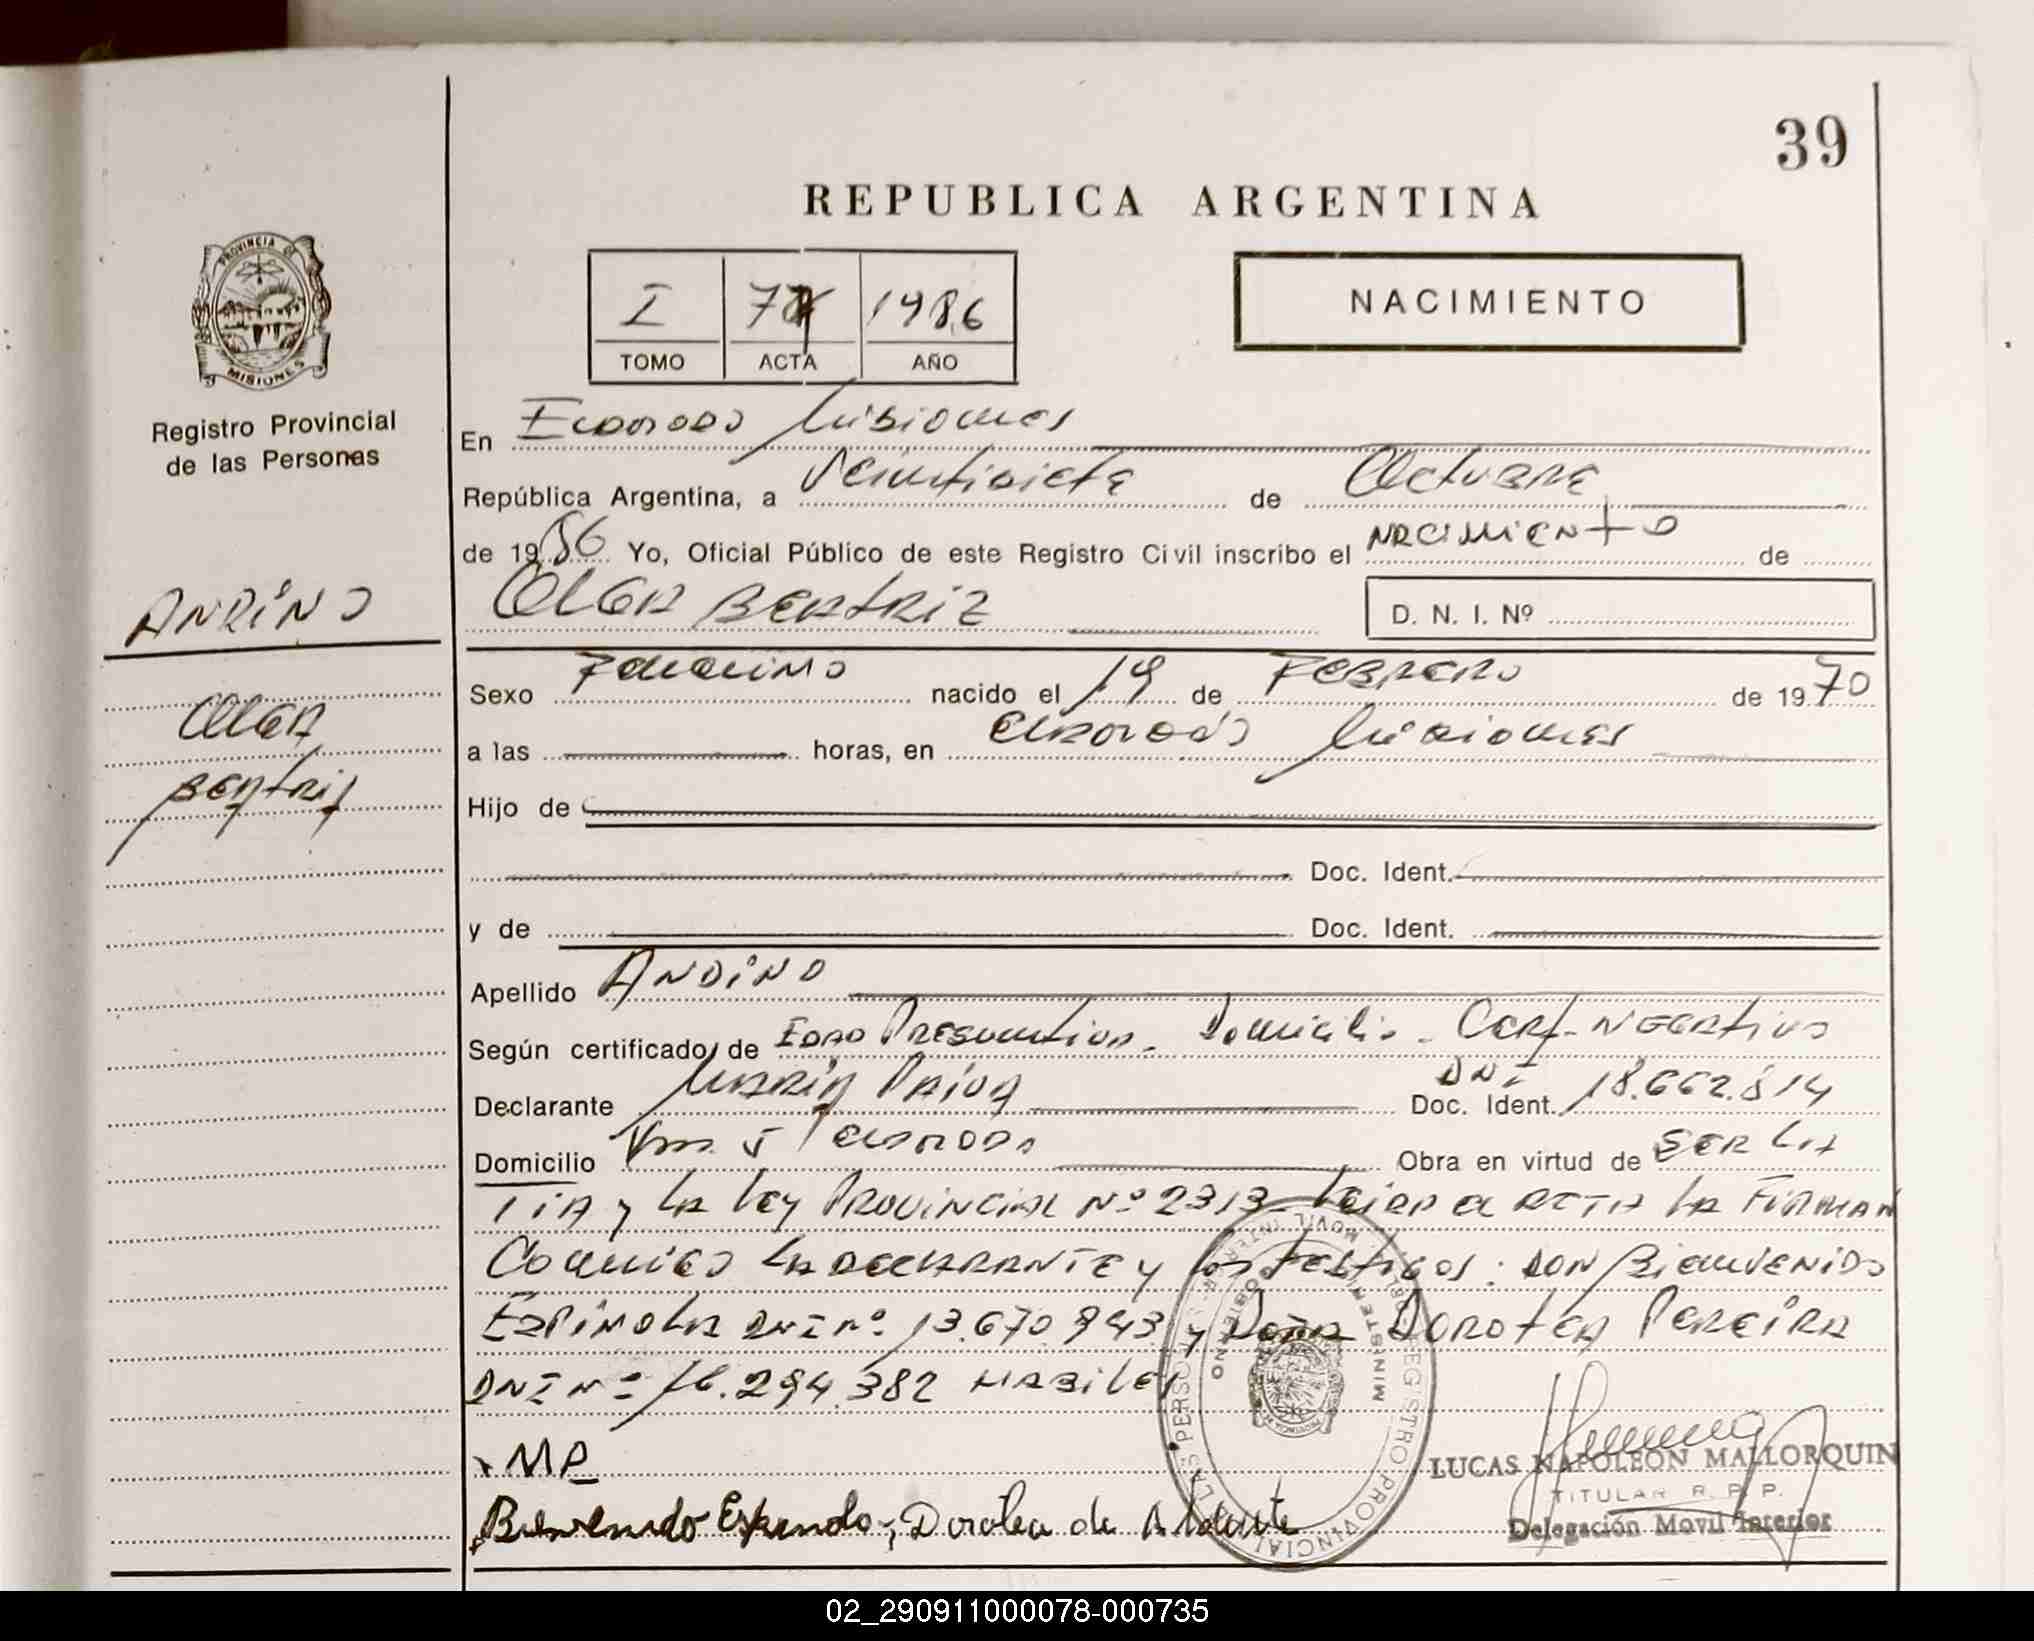 39
REPUBLICA ARGENTINA
PROVINCIA DE
MISIONES
Registro Provincial
de las Personas
I 1986
TOMO ACTA AÑO
NACIMIENTO
En Eldorado Misiones
República Argentina, a Veintisiete de Octubre
de 1986 Yo, Oficial Público de este Registro Civil inscribo el NACIMIENTO de
OLGA BEATRIZ D. N. I. Nº
ANDINO
OLGA
BEATRIZ
Sexo Femenino nacido el 19 de FEBRERO de 1970
a las horas, en Eldorado Misiones
Hijo de
Doc. Ident.
y de Doc. Ident.
Apellido ANDINO
Según certificado de EDAD Presuntiva - Domicilio - Cert. NEGATIVO
Declarante MARIA PAIVA Doc. Ident. DNI 18.662.814
Domicilio Km. 5 Eldorado Obra en virtud de SER LA
TIA y LA Ley PROVINCIAL Nº 2313 - Leida el ACTA LA FIRMAN
Conmigo LA DECLARANTE y los Testigos: DON BIENVENIDO
ESPINOLA DNI Nº 13.670.943 y Doña DOROTEA PEREIRA
DNI Nº 16.294.382 HABILES
MP
Bienvenido Espindola, Dorotea de
REGISTRO PROVINCIAL DE LAS PERSONAS
MINISTERIO GOBIERNO
LUCAS NAPOLEON MALLORQUIN
TITULAR R. P. P.
Delegación Movil Interior
02_290911000078-000735